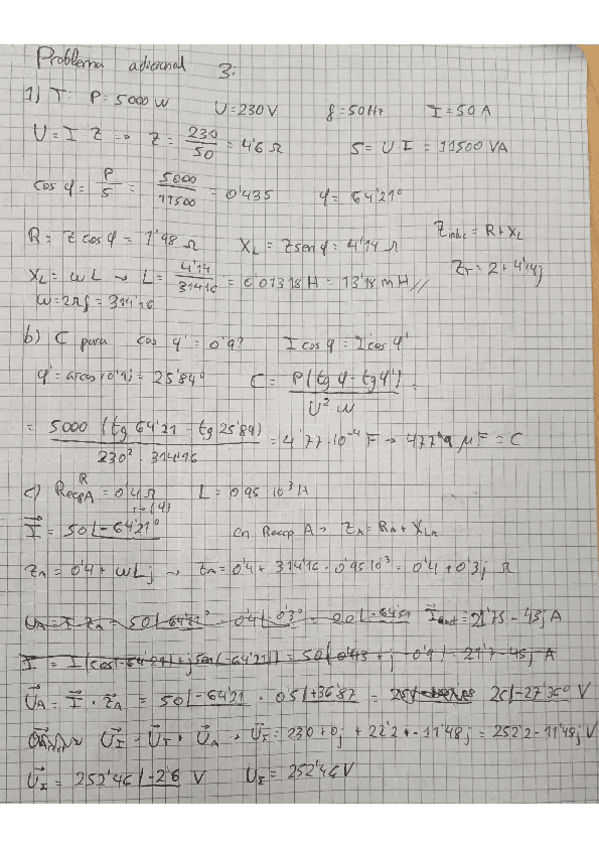 Problema adicional 3:
1) T: P = 5000 W U = 230 V f = 50 Hz I = 50 A
U = I · Z => Z = 230/50 = 4'6 Ω S = U · I = 11500 VA
cos φ = P/S = 5000/11500 = 0'435 φ = 64'21°
R = Z cos φ = 1'98 Ω XL = Z sen φ = 4'14 Ω Z induc = R + XL
XL = ω L → L = 4'14/314'16 = 0'01318 H = 13'18 mH // ZT = 2 + 4'14j
ω = 2πf = 314'16
b) C para cos φ' = 0'9? I cos φ = I' cos φ'
φ' = arcos(0'9) = 25'84° C = P(tg φ - tg φ')/U² ω =
= 5000 (tg 64'21 - tg 25'84)/230² · 314'16 = 4'77·10⁻⁴ F → 477'9 μF = C
c) R Recep A = 0'4 Ω L = 0'95 10³ H
I = 50∠-64'21° en Recep A → ZA = RA + XLA
ZA = 0'4 + ωLj → ZA = 0'4 + 314'16 · 0'95 10³ = 0'4 + 0'3j Ω
UA = I · ZA = 50∠-64'21° · 0'4∠0'3° = 20∠-64'51 = 21'75 - 45j A
I = I(cos(-64'21) + j sen(-64'21)) = 50(0'43 + j - 0'9) = 21'7 - 45j A
UA = I · ZA = 50∠-64'21 · 0'5∠+36'87 = 25∠-27'36° V
UI = UT + UA → UI = 230 + 0j + 22'2 - 11'48j = 252'2 - 11'48j V
UI = 252'46∠-2'6 V UI = 252'46 V